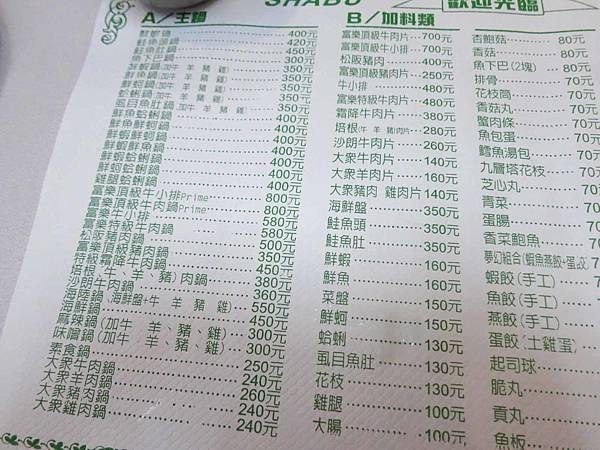 SHABU
歡迎光臨
A／主鍋
鮮蝦鍋 400元
鮭魚頭鍋 420元
鮭魚肚鍋 450元
魚下巴鍋 300元
鮮蝦鍋(加牛 羊 豬 雞) 350元
鮮魚鍋(加牛 羊 豬 雞) 350元
鮮蚵鍋(加牛 羊 豬 雞) 350元
蛤蜊鍋(加牛 羊 豬 雞) 350元
虱目魚肚鍋(加牛 羊 豬 雞) 350元
鮮魚蛤蜊鍋 400元
鮮魚鮮蚵鍋 400元
鮮蝦鮮蚵鍋 400元
鮮蝦鮮魚鍋 400元
鮮蝦蛤蜊鍋 400元
鮮蚵蛤蜊鍋 400元
雞腿蛤蜊鍋 400元
富樂頂級牛小排Prime 800元
富樂頂級牛肉鍋Prime 800元
富樂牛小排 580元
富樂特級牛肉鍋 580元
松阪豬肉鍋 500元
富樂頂級豬肉鍋 350元
特級霜降牛肉鍋 450元
培根(牛、羊、豬)肉鍋 380元
沙朗牛肉鍋 360元
海陸鍋(海鮮盤+牛 羊 豬 雞) 550元
海鮮鍋 450元
麻辣鍋(加牛 羊、豬、雞) 300元
味噌鍋(加牛 羊、豬、雞) 300元
素食鍋 250元
大衆牛肉鍋 240元
大衆羊肉鍋 260元
大衆豬肉鍋 240元
大衆雞肉鍋 240元
B／加料類
富樂頂級牛肉片 700元
富樂頂級牛小排 700元
松阪豬肉 400元
富樂頂級豬肉片 250元
牛小排 480元
富樂特級牛肉片 480元
霜降牛肉片 380元
培根(牛 羊 豬)肉片 280元
沙朗牛肉片 260元
大衆牛肉片 140元
大衆羊肉片 160元
大衆豬肉 雞肉片 140元
海鮮盤 350元
鮭魚頭 350元
鮭魚肚 350元
鮮蝦 160元
鮮魚 160元
菜盤 150元
鮮蚵 150元
蛤蜊 130元
虱目魚肚 130元
花枝 130元
雞腿 100元
大腸 100元
杏鮑菇 80元
香菇 80元
魚下巴(2塊) 80元
排骨 70元
花枝筒 70元
香菇丸 70元
蟹肉條 70元
魚包蛋 70元
鱈魚湯包 70元
九層塔花枝 70元
芝心丸 70元
青菜 70元
蛋腸 70元
香菜鮑魚 70元
夢幻組合(蝦魚燕餃+蛋 7
蝦餃(手工)
魚餃(手工)
燕餃(手工)
蛋餃(土雞蛋)
起司球
脆丸
貢丸
魚板